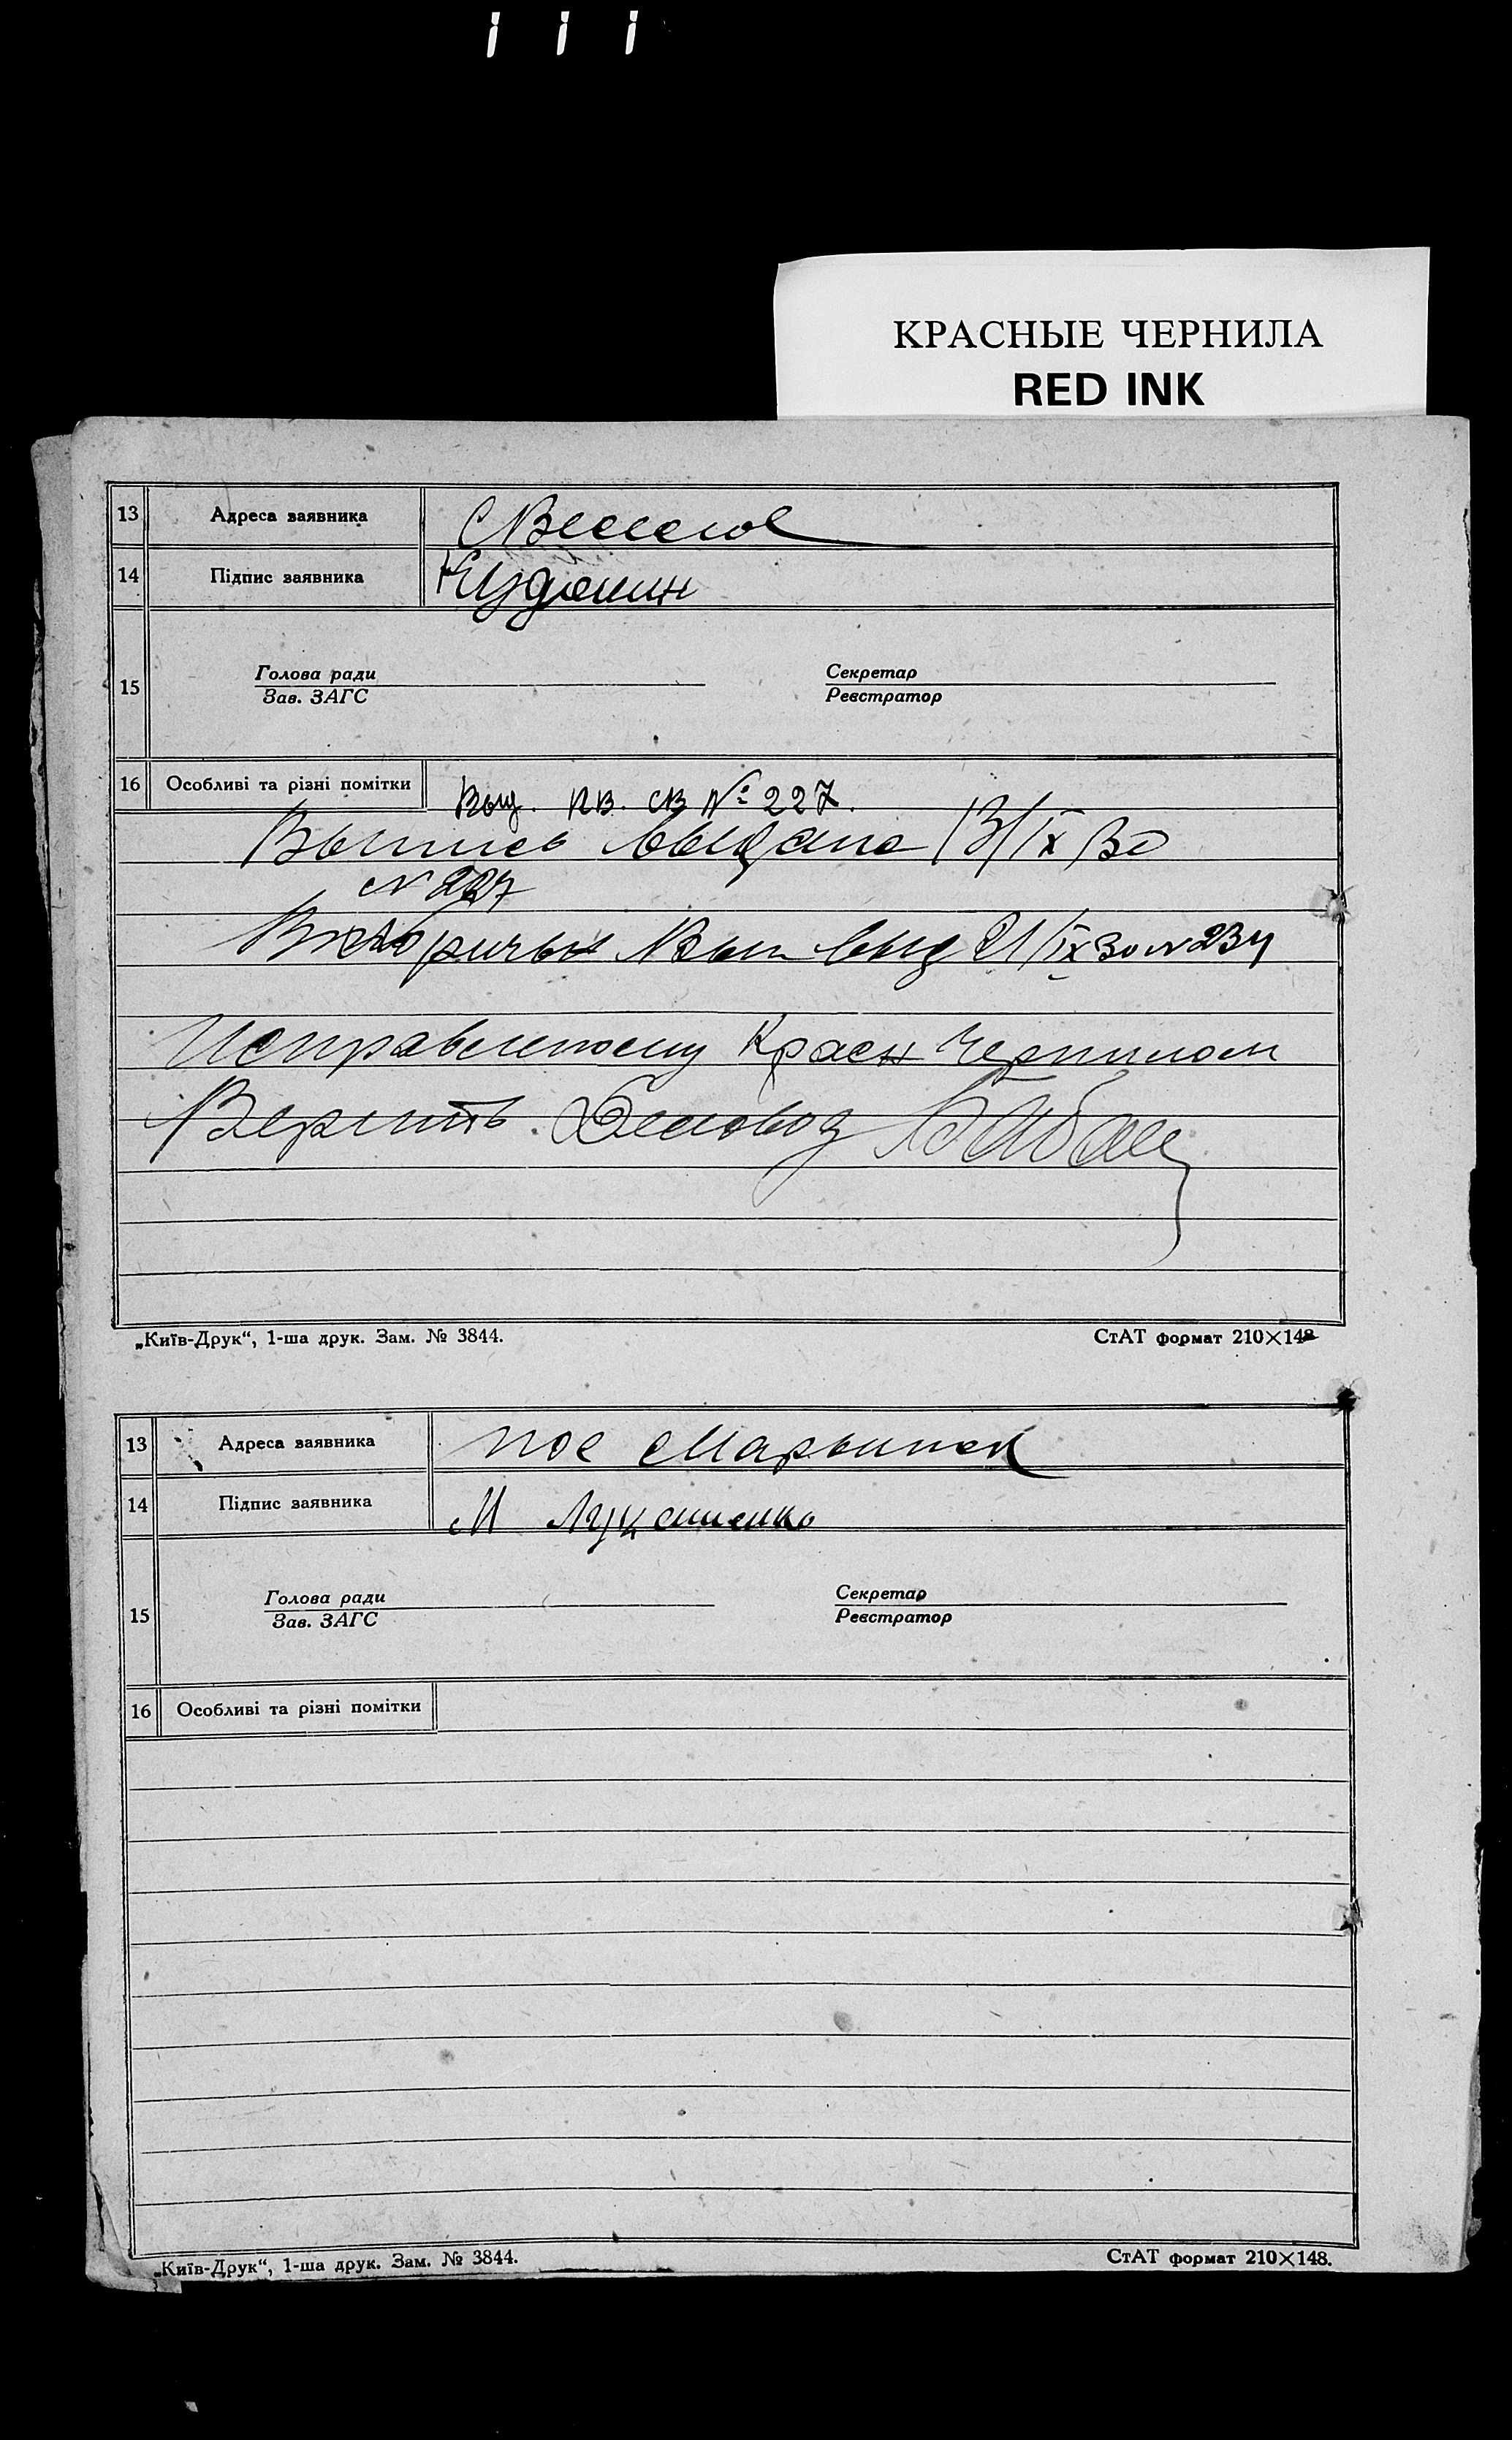 КРАСНЫЕ ЧЕРНИЛА
RED INK
13 Адреса заявника С Веселое
14 Підпис заявника Кудокин
15 Голова ради Секретар
Зав. ЗАГС Реєстратор
16 Особливі та різні помітки Выд. пв. св № 227.
Выпись выдана 13/IX 30
N 227
Вторичн Вып выд 21/IX 30 N 234
Исправленному Красн Чернилом
Верить. Деловод
„Київ-Друк“, 1-ша друк. Зам. № 3844. СтАТ формат 210×148
13 Адреса заявника пос Марьинск
14 Підпис заявника М Лукашенко
15 Голова ради Секретар
Зав. ЗАГС Реєстратор
16 Особливі та різні помітки
„Київ-Друк“, 1-ша друк. Зам. № 3844. СтАТ формат 210×148.